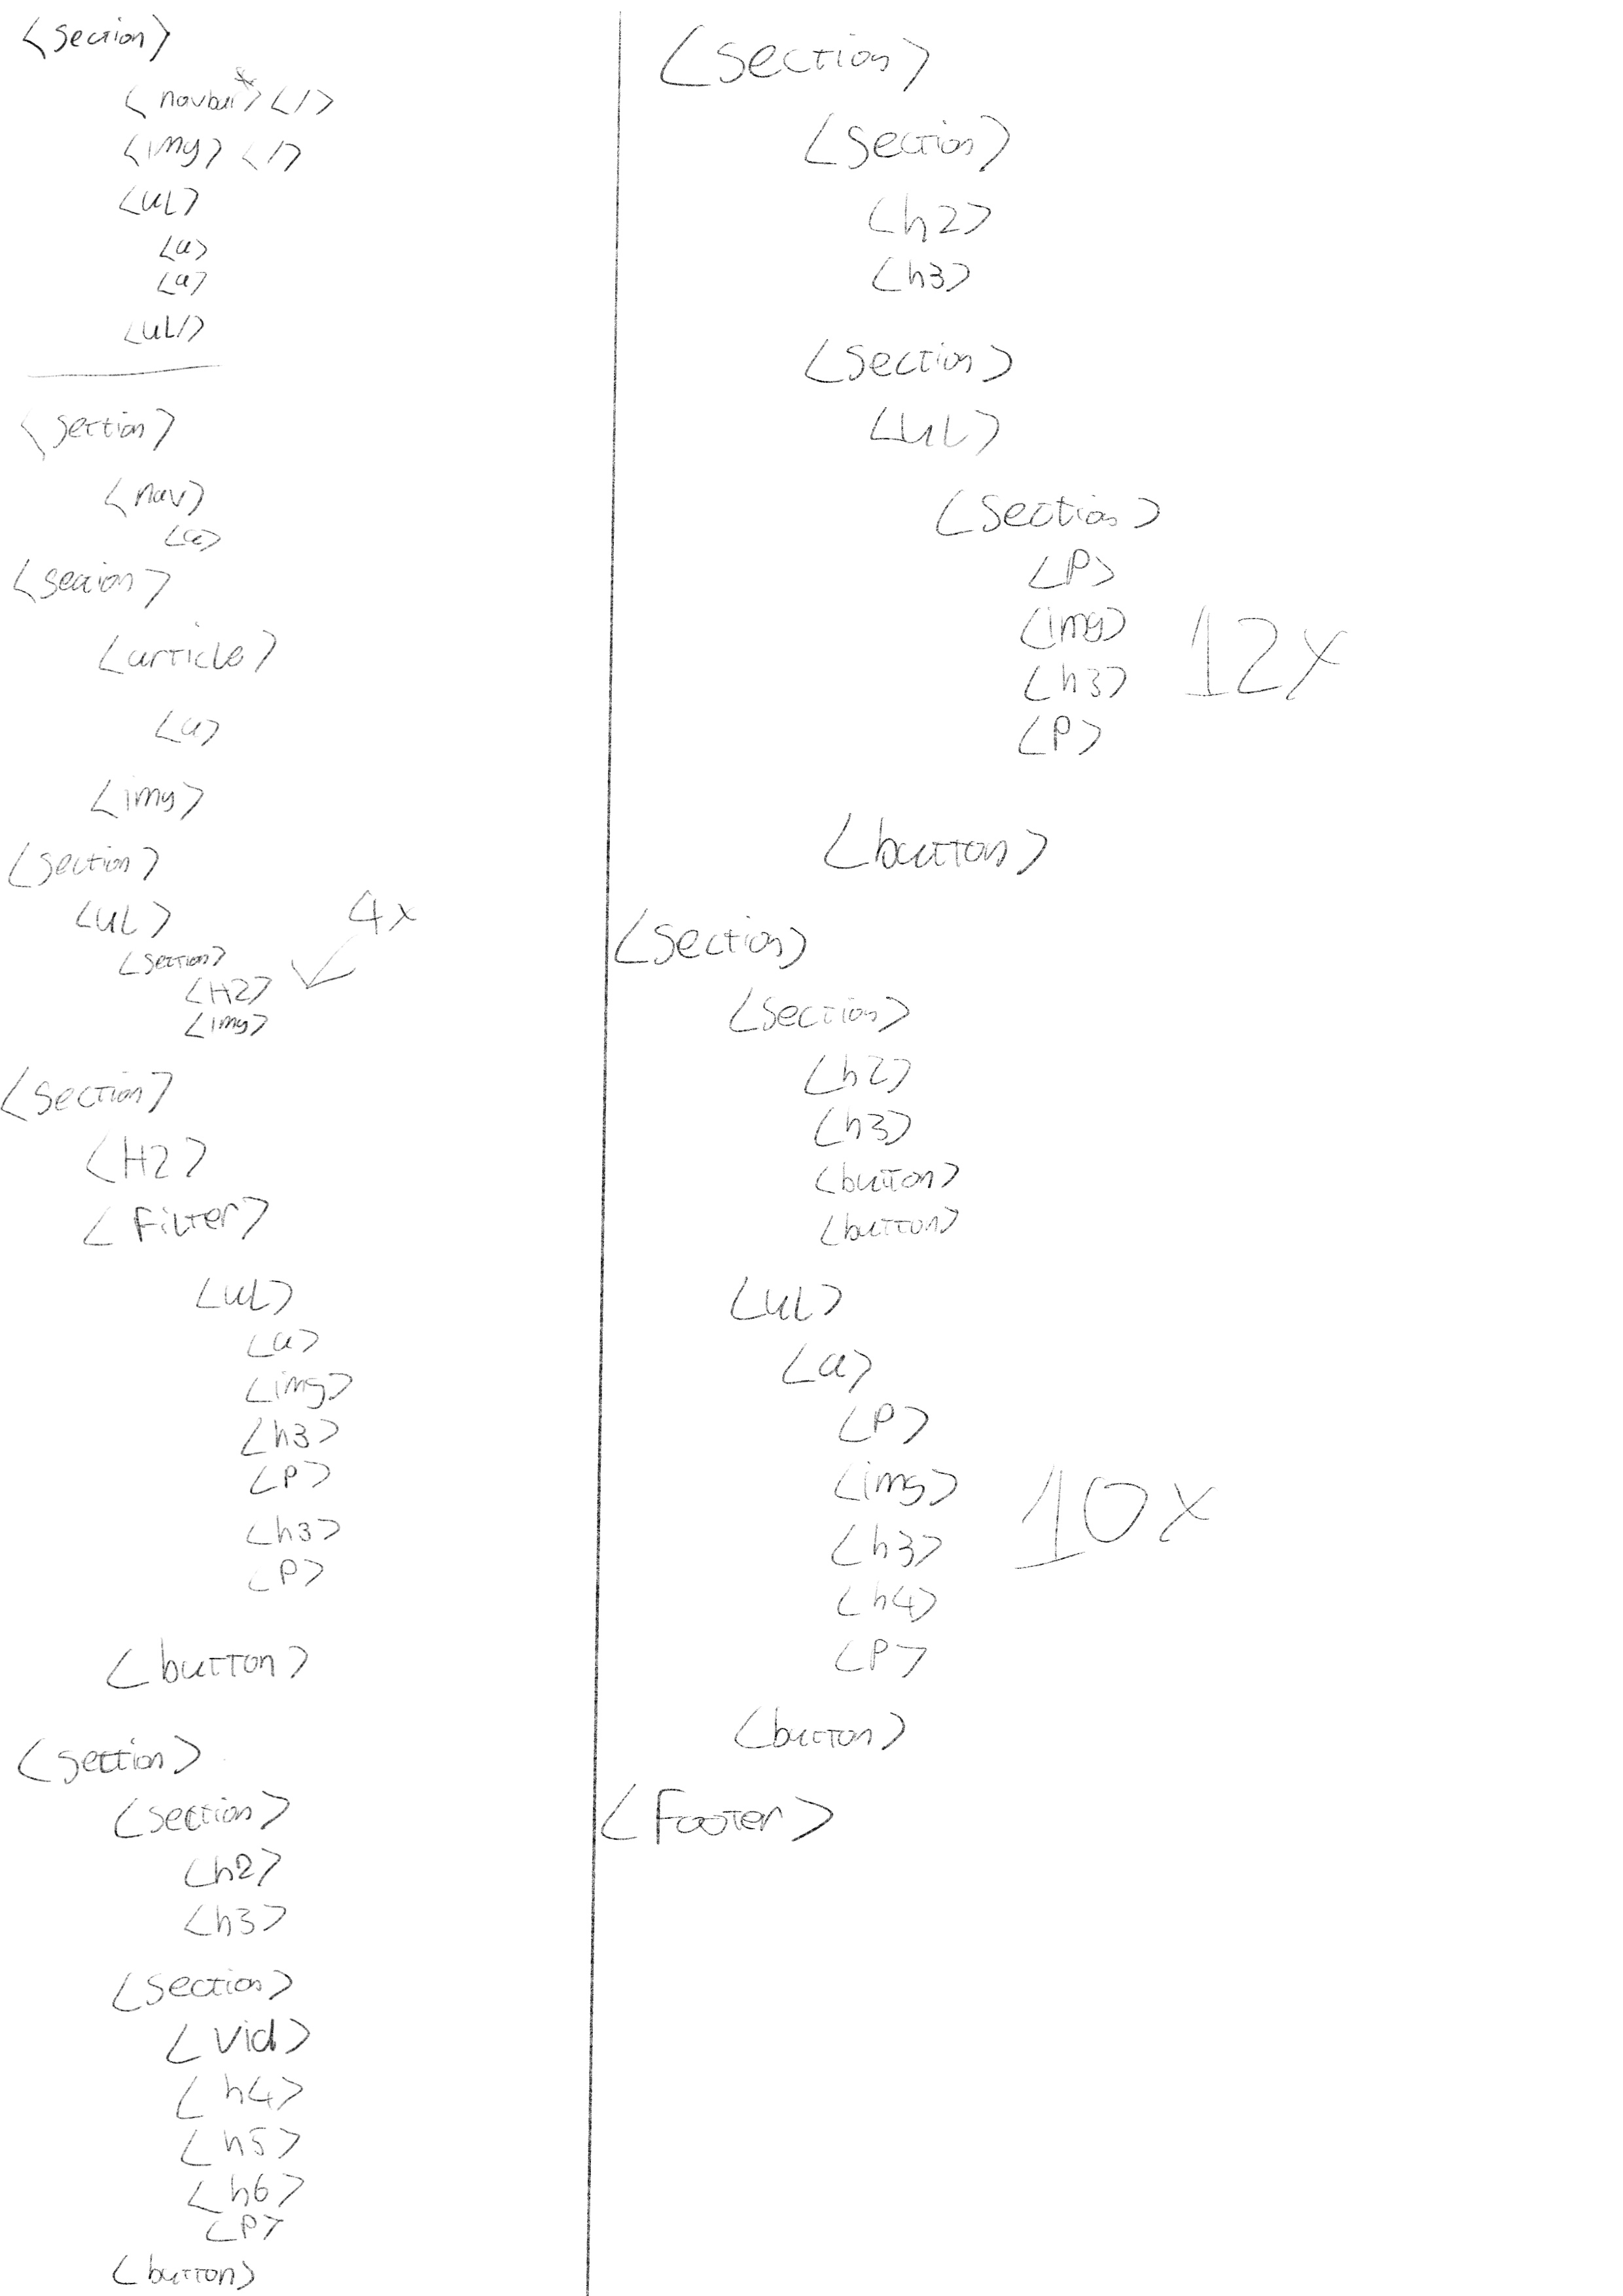 <section>
<navbar*> </>
<img> </>
<UL>
<a>
<a>
<UL/>
<section>
<nav>
<a>
<secion>
<article>
<a>
<img>
<section>
<UL>
4x
<section>
<H2>
<img>
<section>
<H2>
<Filter>
<UL>
<a>
<img>
<h3>
<P>
<h3>
<P>
<button>
<section>
<section>
<h2>
<h3>
<section>
<Vid>
<h4>
<h5>
<h6>
<P>
<button>
<section>
<section>
<h2>
<h3>
<section>
<UL>
<section>
<P>
<img>
12x
<h3>
<P>
<button>
<section>
<section>
<h2>
<h3>
<button>
<button>
<UL>
<a>
<P>
<img>
10x
<h3>
<h4>
<P>
<button>
<Footer>